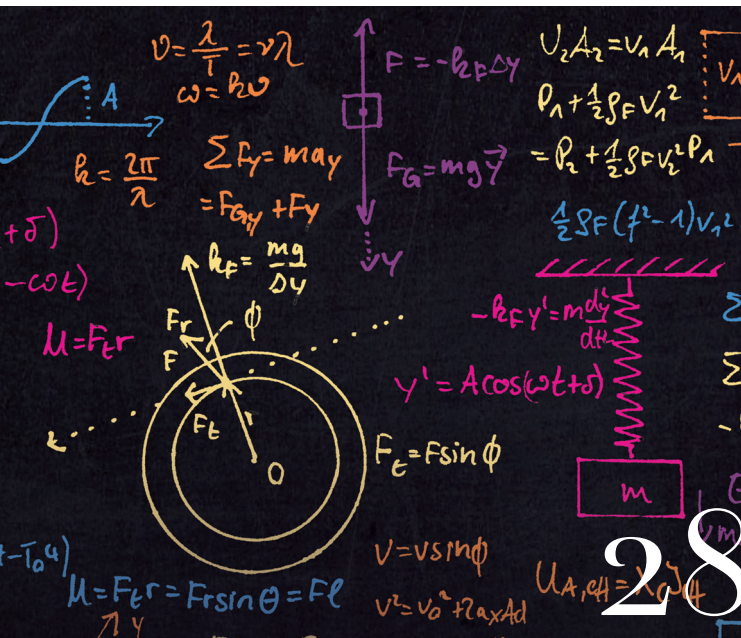 υ = λ/T = νλ
ω = kυ
A
k = 2π/λ
ΣFy = may
= FG,y + Fy
F = -kFΔy
FG = mgy⃗
y
U2A2 = v1A1
P1 + ½ρFV1²
= P2 + ½ρFv2²P1
½ρF(f²-1)v1²
V1
+δ)
-ωt)
M = Ftr
kF = mg/Δy
Fr
ϕ
F
Ft
r
O
Ft = Fsinϕ
-kFy' = m
y' = Acos(ωt+δ)
m
M = Ftr = Frsinθ = Fl
y
V = vsinϕ
v² = v0² + 2axΔd
28